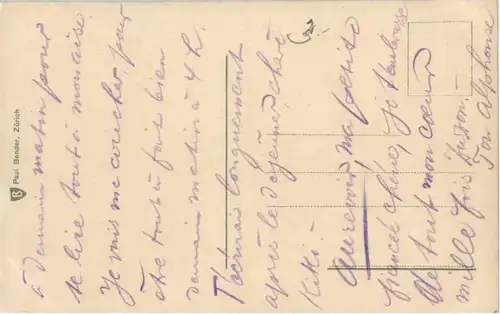 à demain matin pour
te lire tout à mon aise.
Je vais me coucher, pour
être tout à fait bien
demain matin à 4 h.
T'écrirai longuement
après le déjeuner, chère
Kiki.
Au revoir, ma petite
fiancée chérie, je t'embrasse
de tout mon coeur
mille fois
Ton Alphonse
Paul Bender, Zürich